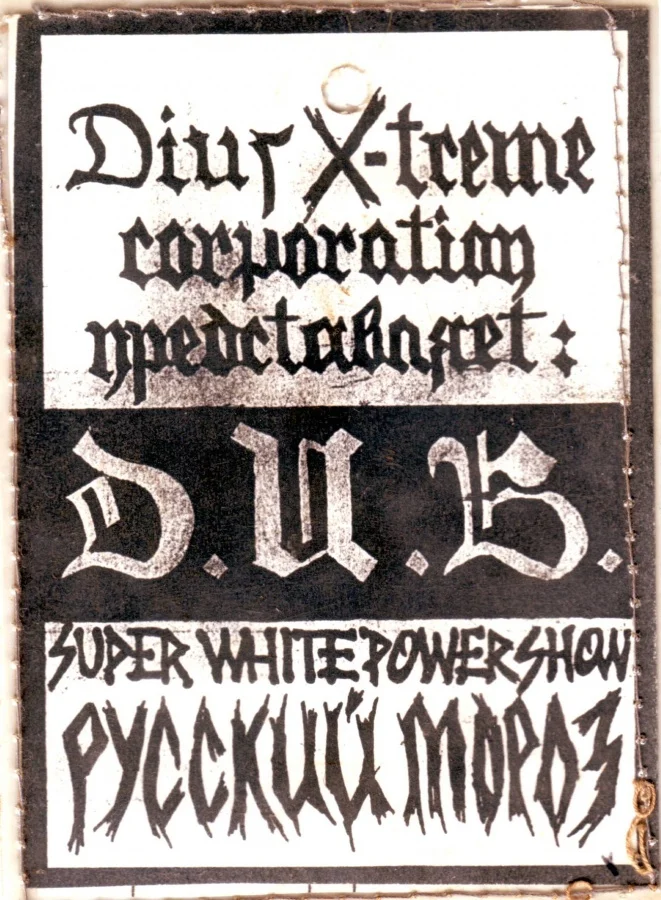 Dius X-treme
corporation
представляет:
D.U.B.
SUPER WHITE POWER SHOW
РУССКИЙ МОРОЗ